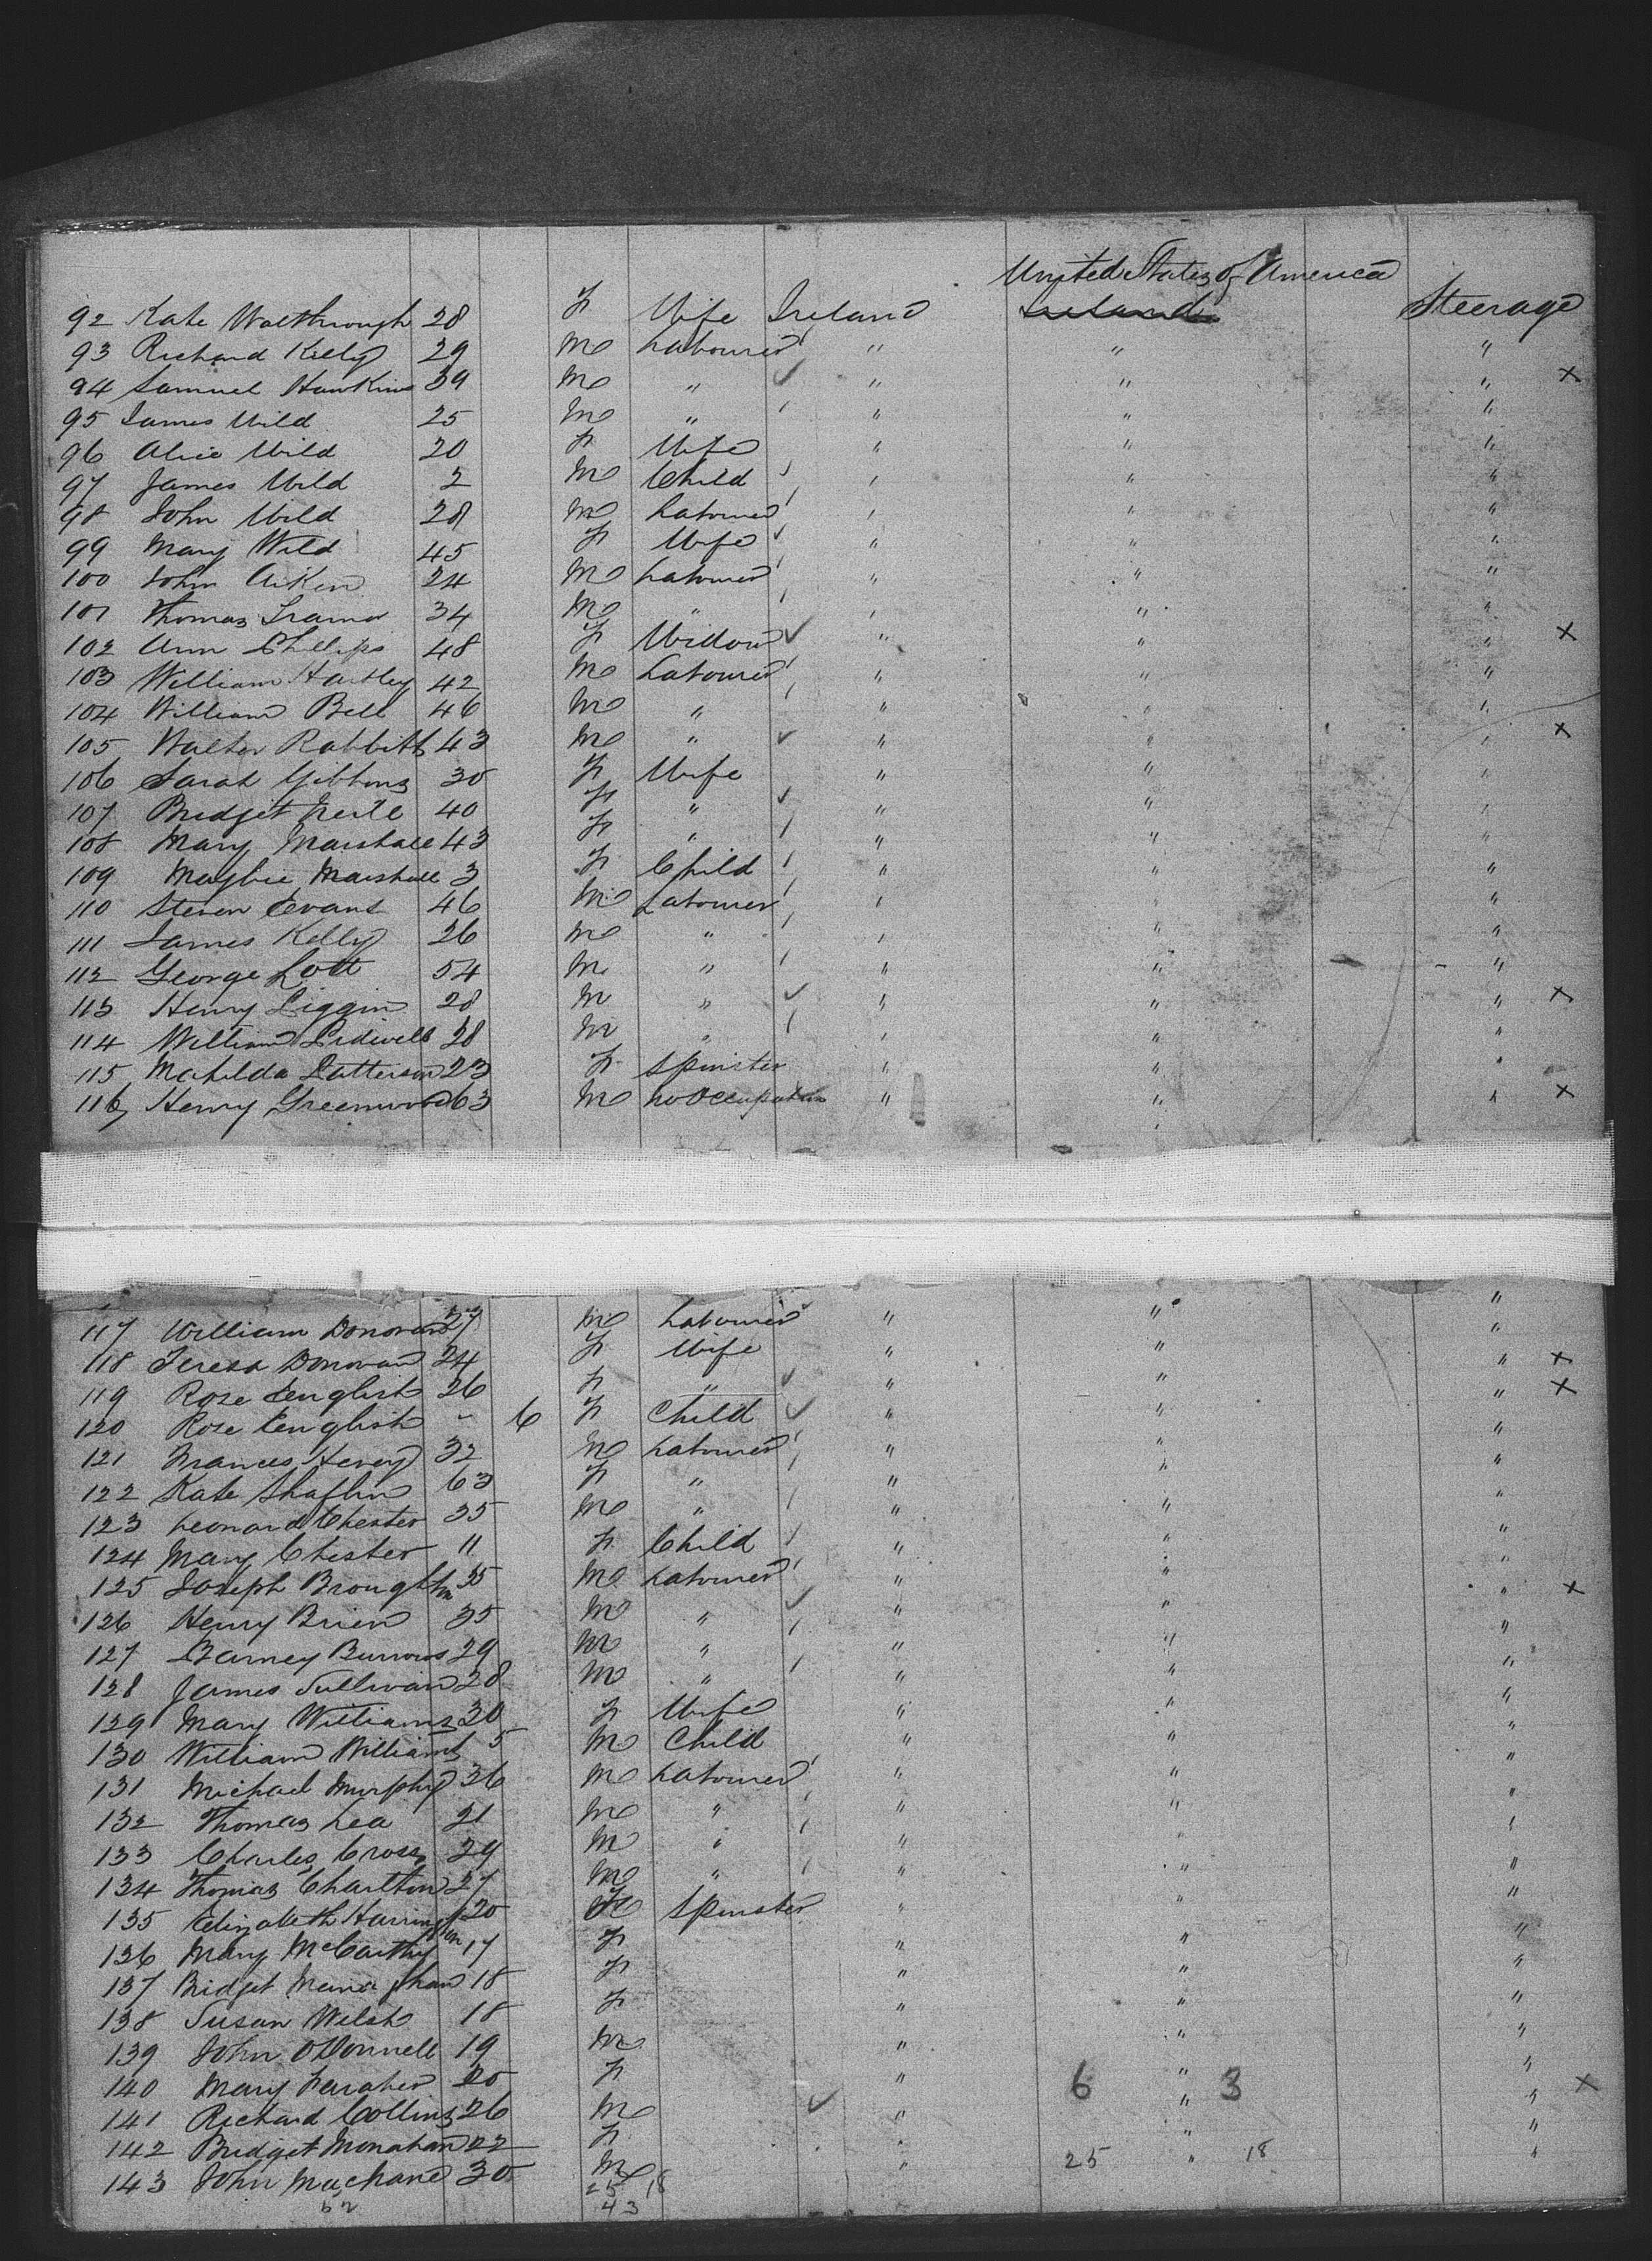 United States of America
92 Kate Walthrough 28 F Wife Ireland Ireland Steerage
93 Richard Kelly 29 M Labourer " " "
94 Samuel Hawkins 39 M " ✓ " " " x
95 James Wild 25 M " " " "
96 Alice Wild 20 F Wife " " "
97 James Wild 2 M Child " " "
98 John Wild 28 M Labourer " " "
99 Mary Wild 45 F Wife " " "
100 John Aiken 24 M Labourer " " "
101 Thomas 34 M " " " "
102 Ann Phillips 48 F Widow ✓ " " " x
103 William Hartley 42 M Labourer " " "
104 William Bell 46 M " " " "
105 Walter Rabbitts 43 M " ✓ " " " x
106 Sarah Gibbons 30 F Wife " " "
107 Bridget 40 F " ✓ " " "
108 Mary Marshall 43 F " " " "
109 Marshall 3 F Child " " "
110 Steven Evans 46 M Labourer " " "
111 James Kelly 26 M " " " "
112 George Lott 54 M " " " "
113 Henry Liggin 28 M " ✓ " " " x
114 William Lidwell 28 M " " " "
115 Mathilda Patterson 23 F Spinster " " "
116 Henry Greenwood 63 M no Occupation " " " x
117 William Donovan 27 M Labourer " " "
118 Teresa Donovan 24 F Wife " " "
119 Rose English 26 F " ✓ " " " x
120 Rose English " 6 F Child ✓ " " " x
121 Frances Henry 32 M Labourer " " "
122 Kate Shaflin 63 F " " " "
123 Leonard Chester 35 M " " " "
124 Mary Chester 11 F Child " " "
125 Joseph Broughton 35 M Labourer " " "
126 Henry Brien 35 M " ✓ " " " x
127 Barney Burrows 29 M " " " "
128 James Sullivan 28 M " " " "
129 Mary Williams 30 F Wife " " "
130 William Williams 5 M Child " " "
131 Michael Murphy 36 M Labourer " " "
132 Thomas Lea 21 M " " " "
133 Charles Cross 29 M " " " "
134 Thomas Charlton 27 M " " " "
135 Elizabeth Harrington 20 F Spinster " " "
136 Mary McCarthy 17 F " " "
137 Bridget 18 F " " "
138 Susan Welsh 18 F " " "
139 John O'Donnell 19 M " " "
140 Mary Faraher 20 F " 6 " 3 "
141 Richard Collins 26 M ✓ " " " x
142 Bridget Monahan 22 F " " "
143 John 30 M " 25 " 18 "
25 18
52 43